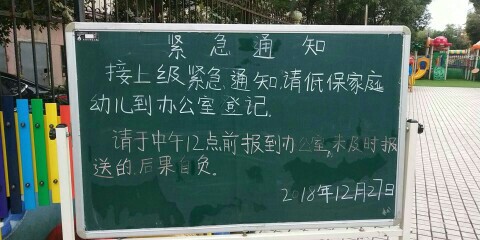 紧急通知
接上级紧急通知,请低保家庭
幼儿到办公室登记.
请于中午12点前报到办公室,未及时报
送的,后果自负.
2018年12月27日